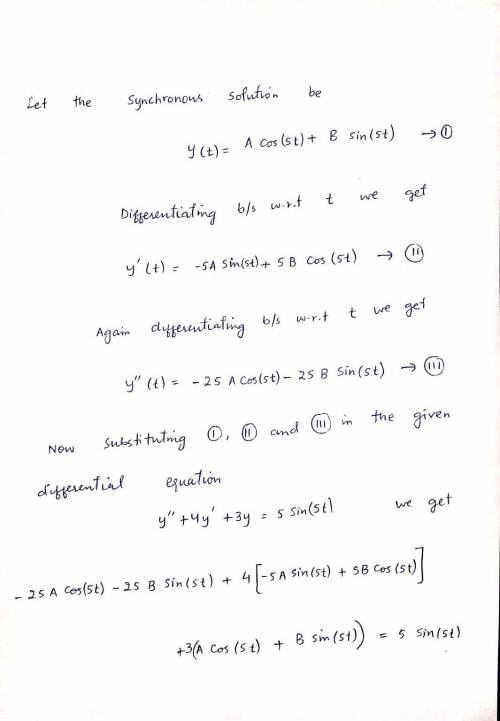 Let the synchronous solution be
y(t) = A cos(5t) + B sin(5t) → Ⓘ
Differentiating b/s w.r.t t we get
y'(t) = -5A sin(5t) + 5B cos(5t) → Ⓘⓘ
Again differentiating b/s w.r.t t we get
y''(t) = -25 A cos(5t) - 25 B sin(5t) → (III)
Now substituting (I), (II) and (III) in the given
differential equation
y'' + 4y' + 3y = 5 sin(5t) we get
-25A cos(5t) - 25 B sin(5t) + 4[-5A sin(5t) + 5B cos(5t)]
+3(A cos(5t) + B sin(5t)) = 5 sin(5t)